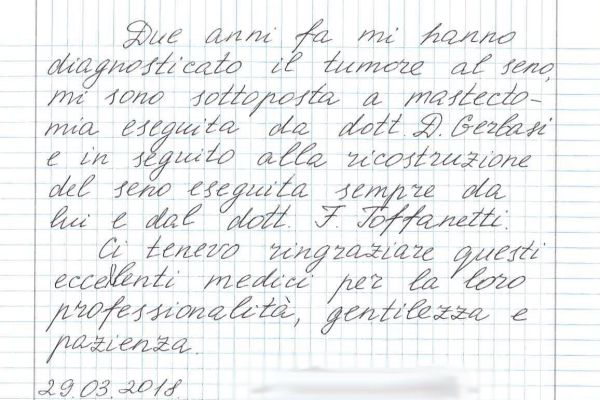 Due anni fa mi hanno
diagnosticato il tumore al seno,
mi sono sottoposta a mastecto-
mia eseguita da dott. D. Gerbasi
e in seguito alla ricostruzione
del seno eseguita sempre da
lui e dal dott. F. Toffanetti.
Ci tenevo ringraziare questi
eccellenti medici per la loro
professionalità, gentilezza e
pazienza.
29.03.2018.